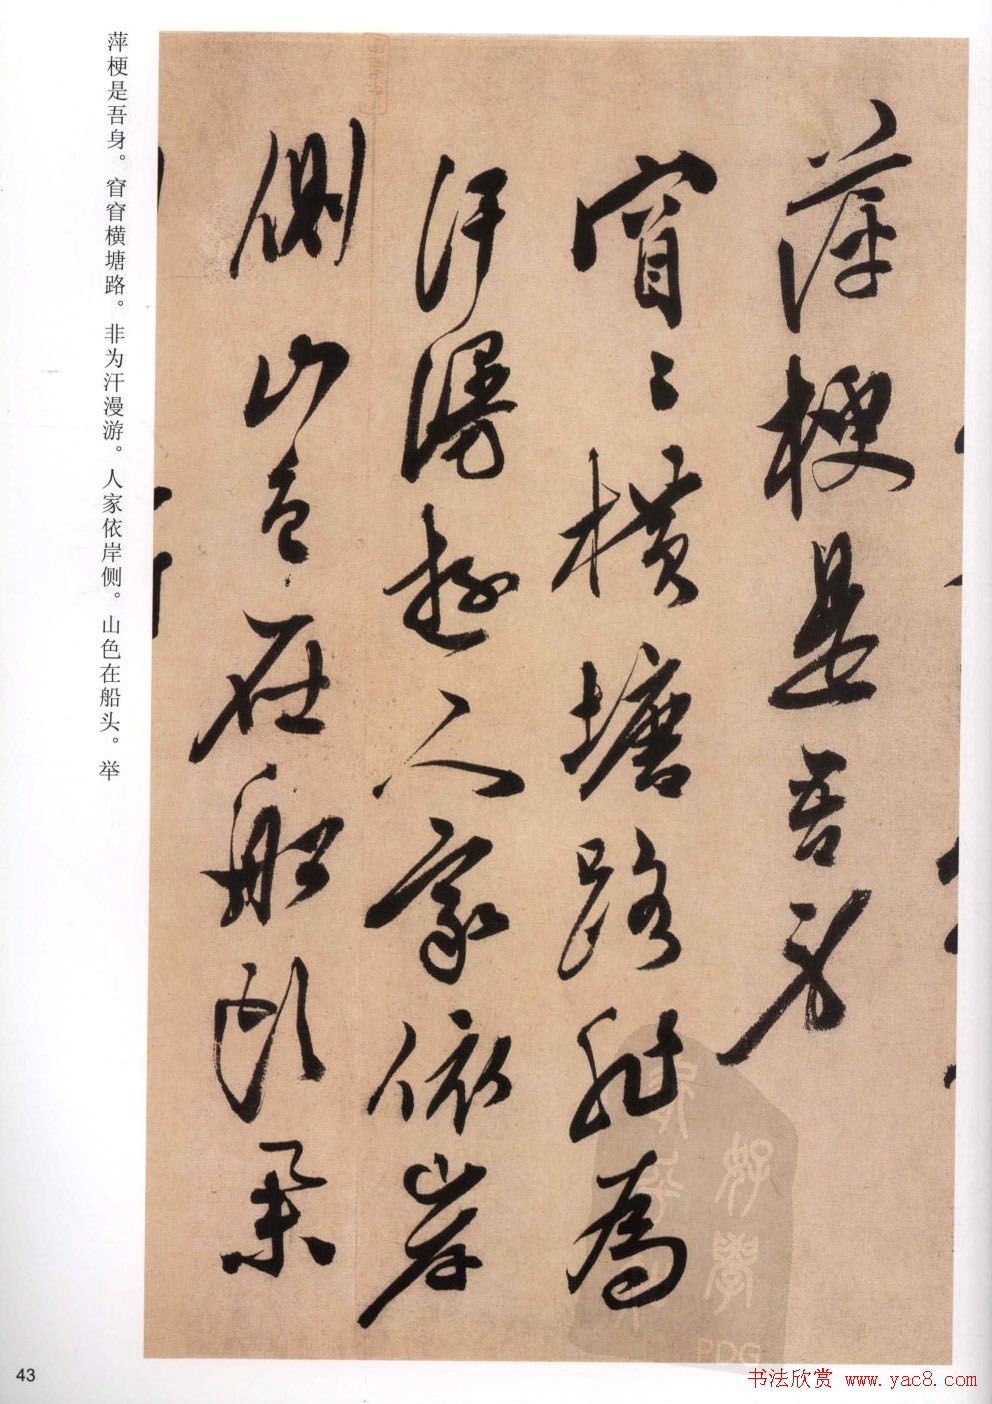 萍梗是吾身
窅〻橫塘路非為
汗漫遊人家依岸
側山色在船頭
萍梗是吾身。窅窅横塘路。非为汗漫游。人家依岸侧。山色在船头。举
43
PDG
书法欣赏 www.yac8.com